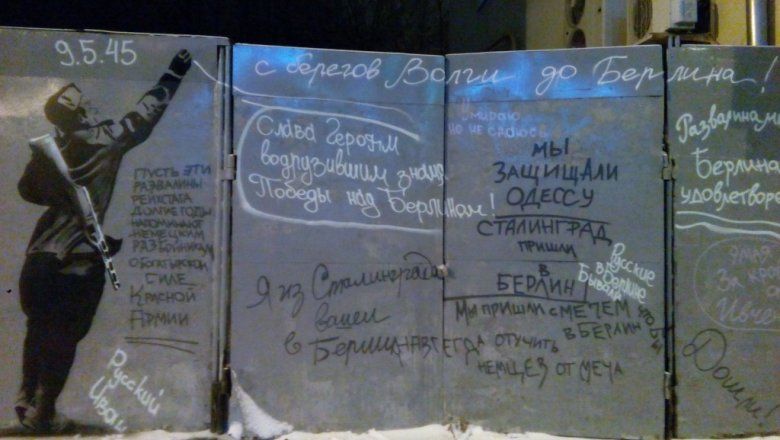 9.5.45
с берегов Волги до Берлина!
ПУСТЬ ЭТИ
РАЗВАЛИНЫ
РЕЙХСТАГА
ДОЛГИЕ ГОДЫ
НАПОМИНАЮТ
НЕМЕЦКИМ
РАЗБОЙНИКАМ
О БОГАТЫРСКОЙ
СИЛЕ
КРАСНОЙ
АРМИИ
Русский
Иван
Слава Героям
водрузившим знамя
Победы над Берлином!
Я из Сталинграда
в Берлин
Умираю
но не сдаюсь
МЫ
ЗАЩИЩАЛИ
ОДЕССУ
СТАЛИНГРАД
ПРИШЛИ
В
БЕРЛИН
Русские
в Берлине
Бывали
МЫ ПРИШЛИ С МЕЧЕМ
В БЕРЛИН
НАВСЕГДА ОТУЧИТЬ
НЕМЦЕВ ОТ МЕЧА
Развалинами
Берлина
удовлетвор
За
Дошли!